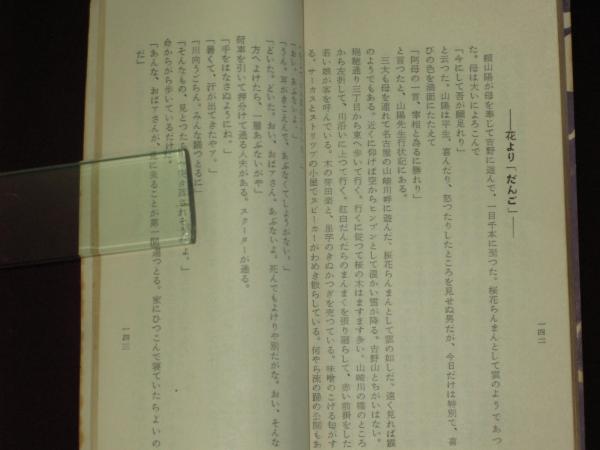 ――花より「だんご」――
頼山陽が母を奉じて吉野に遊んで、一目千本に至つた。桜花らんまんとして雲のようであつ
た。母は大いによろこんで
「今にして吾が願足れり」
と云つた。山陽は平生、喜んだり、怒つたりしたところを見せぬ男だが、今日だけは特別で、喜
びの色を満面にたたえて
「阿母の一言、宰相と為るに勝れり」
と言つたと、山陽先生行状記にある。
三太も母を連れて名古屋の山崎川畔に遊んだ。桜花らんまんとして雲の如しだ。遠く見れば霞
のようでもある。近くに仰げば空からヒンプンとして温かい雪が降る。吉野山とちがいはない。
瑞穂通り三丁目から東へ歩いて行く。行くに従つて桜の木はますます多い。山崎川の橋のところ
から左折して、川沿いに上つて行く。紅白だんだらのまんまくを張り廻らして、赤い前掛をした
若い娘が客を呼んでいる。木の芽田楽と、里芋のきぬかつぎを売つている。味噌のこげる匂がす
る。サーカスとストリップの小屋でスピーカーがわめき散らしている。何やら流の踊の公開もあ
一四二
「おい、あぶないよ。」
「うん。耳がきこえんで、あぶなくてしようがない。」
「どいた、どいた。おい、おばアさん、あぶないよ。死んでもよけりや別だがな。おい、そんな
方へよけたら、一層あぶないがや」
荷車を引いて押分けて通る人夫がある。スクーターが通る。
「手をはなさぬようにね。」
「暑くて、汗が出てきたやア。」
「川向うごらん。みんな踊つとるに」
「そんなもの、見とつたら
命からがら歩いているだけ
「あんな、おばアさんが、
に来ることが第一間違つとる。家にひつこんで寝ていたらよいの
だ」
一四三